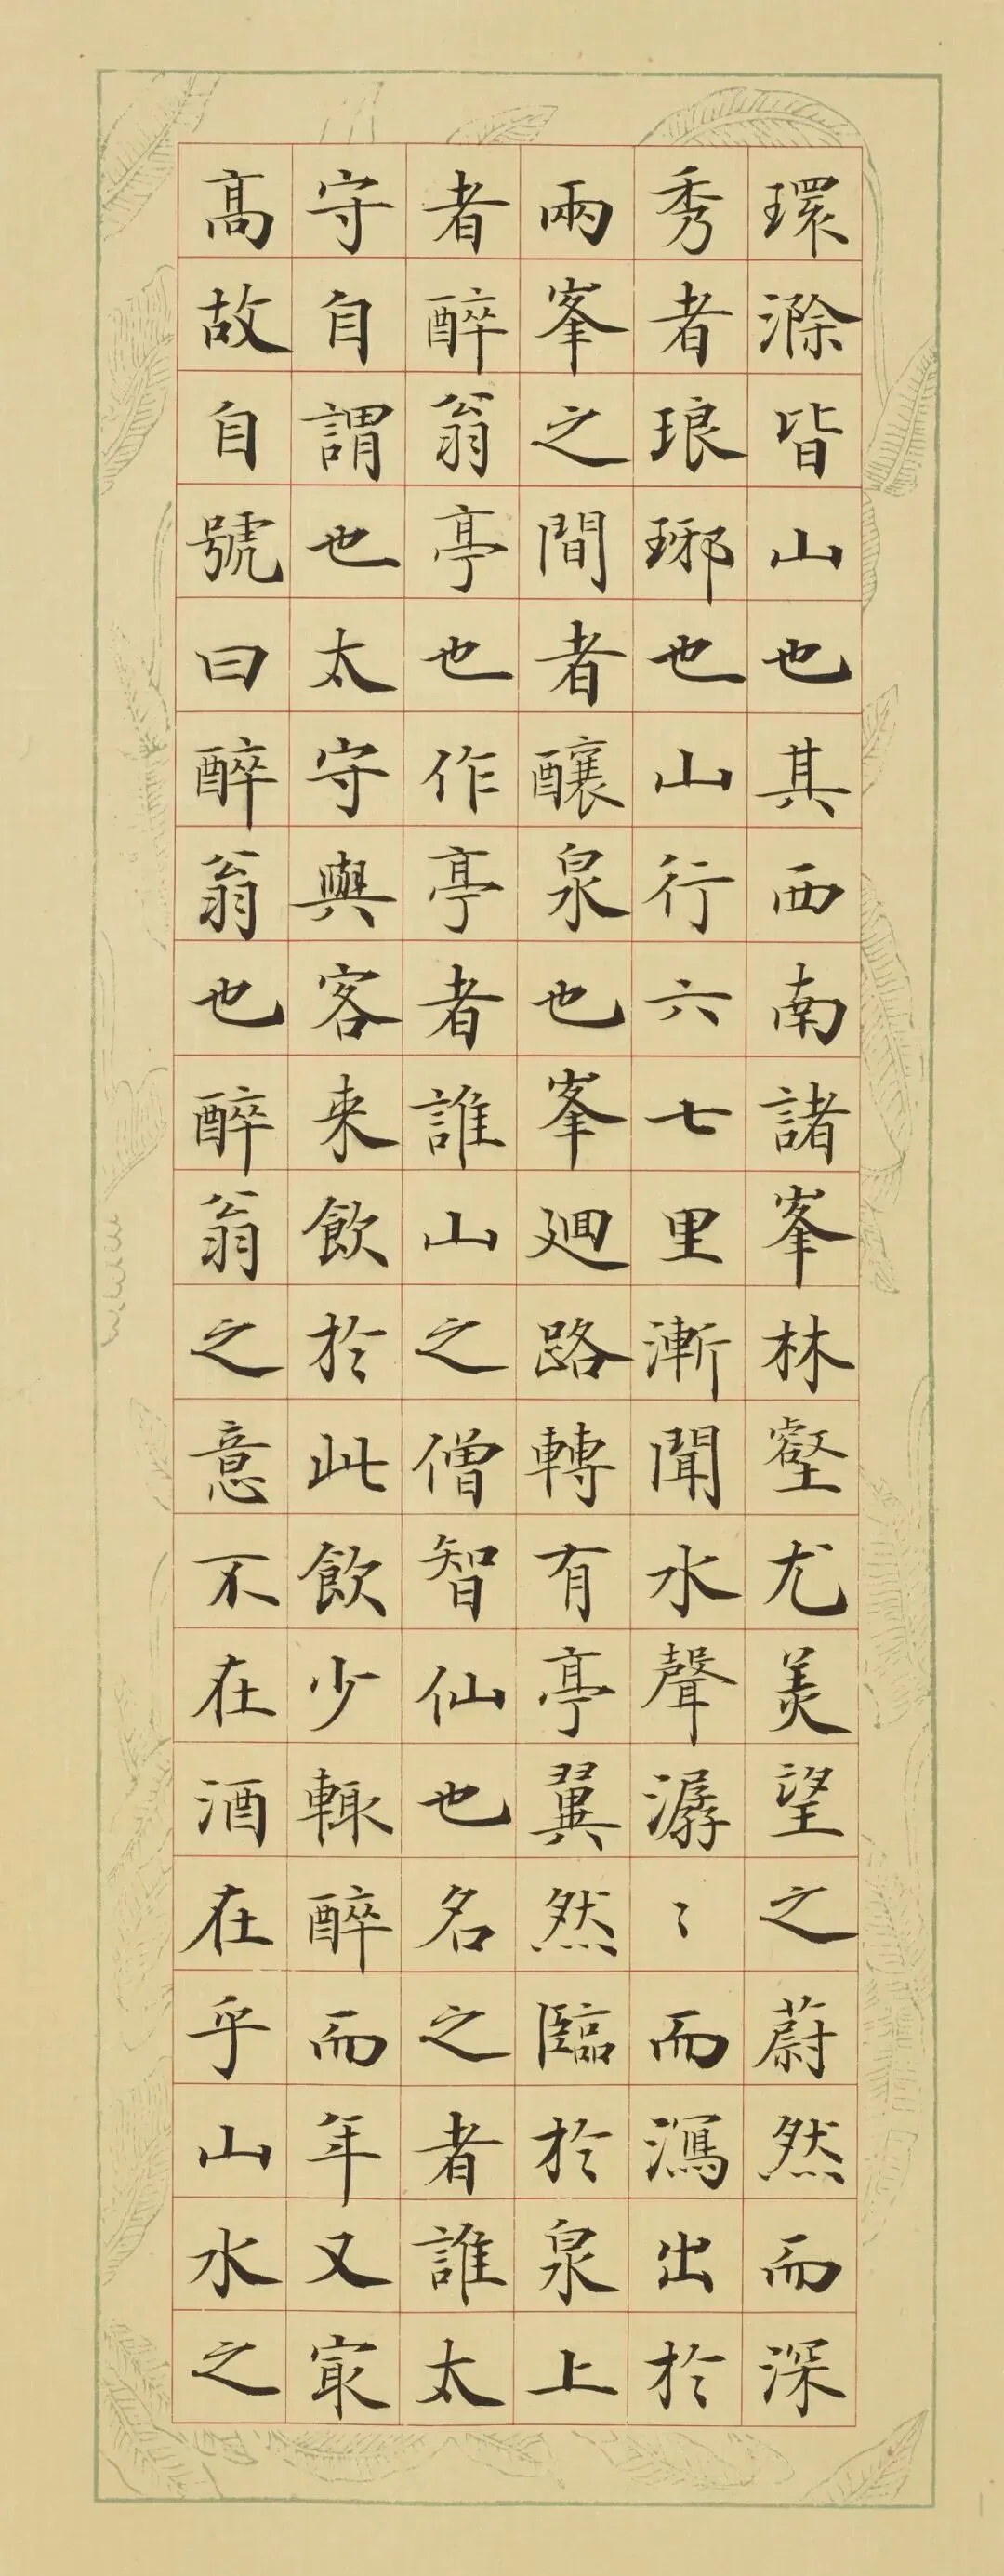 環滁皆山也其西南諸峯林壑尤美望之蔚然而深
秀者琅琊也山行六七里漸聞水聲潺〻而瀉出於
兩峯之間者釀泉也峯廻路轉有亭翼然臨於泉上
者醉翁亭也作亭者誰山之僧智仙也名之者誰太
守自謂也太守與客来飲於此飲少輙醉而年又冣
髙故自號曰醉翁也醉翁之意不在酒在乎山水之